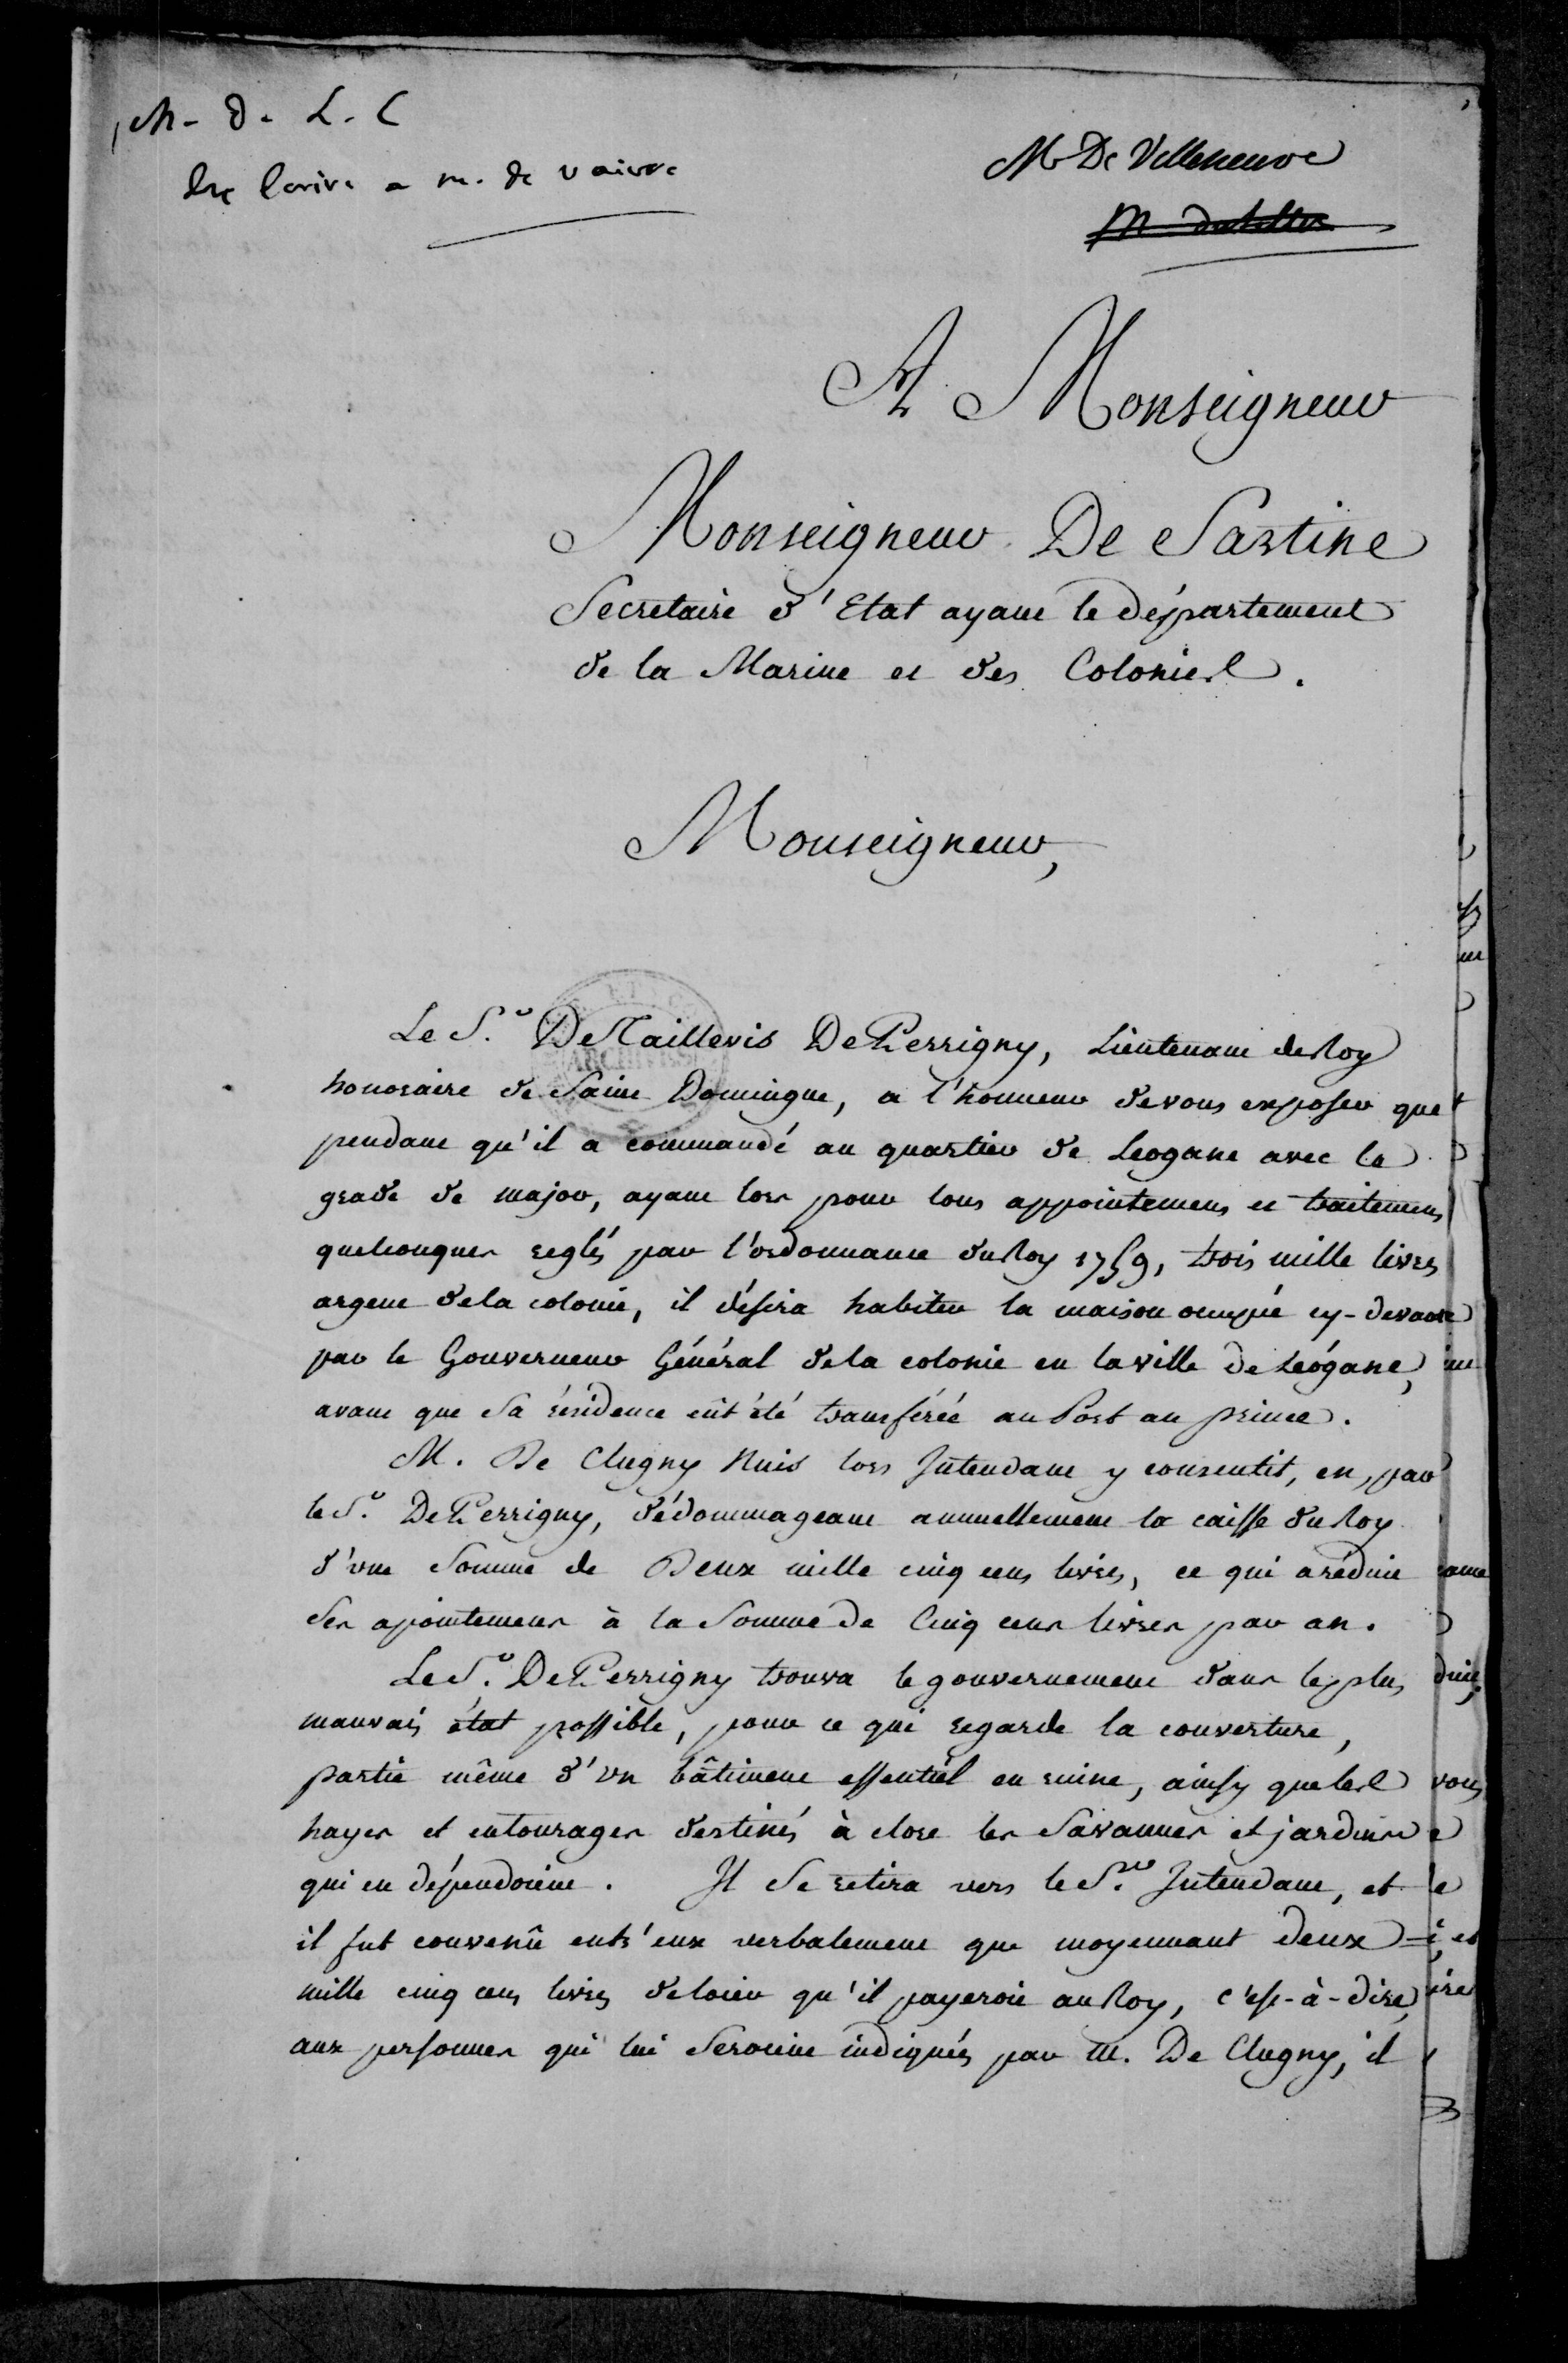 M. D. L. C
M. De Villeneuve
a m. de vaivre
A Monseigneur
Monseigneur De Sartine
Secretaire d'Etat ayant le département
de la Marine et des Colonies.
Monseigneur,
Le S.r De Taillevis De Perrigny, Lieutenant de Roy
honoraire de Saint Domingue, a l'honneur de vous exposer que
pendant qu'il a commandé au quartier de Leogane avec le
grade de major, ayant lors pour tous appointemens et traitemens
quelconques reglés par l'ordonnance du Roy 1759, trois mille livres
argent de la colonie, il désira habiter la maison occupée cy-devant
par le Gouverneur Général de la colonie en la ville de Léógane,
avant que Sa résidence eût été transférée au Port au prince.
M. De Clugny Nuis lors Intendant y consentit, en, par
le S.r De Perrigny, dédommageant annuellement la caisse du Roy
d'une Somme de Deux mille cinq cens livres, ce qui a réduit
Ses apointemens à la Somme de Cinq cens livres par an.
Le S.r De Perrigny trouva le gouvernement dans le plus
mauvais état possible, pour ce qui regarde la couverture,
partie même d'un bâtiment essentiel en ruine, ainsy que les
hayes et entourages destinés à clore les Savannes et jardins
qui en dépendoient. Il Se retira vers le S.r Intendant, et
il fut convenû entr'eux verbalement que moyennant deux
mille cinq cens livres de loier qu'il payeroit au Roy, c'est-à-dire,
aux personnes qui lui Seroient indiqués par M. De Clugny, il